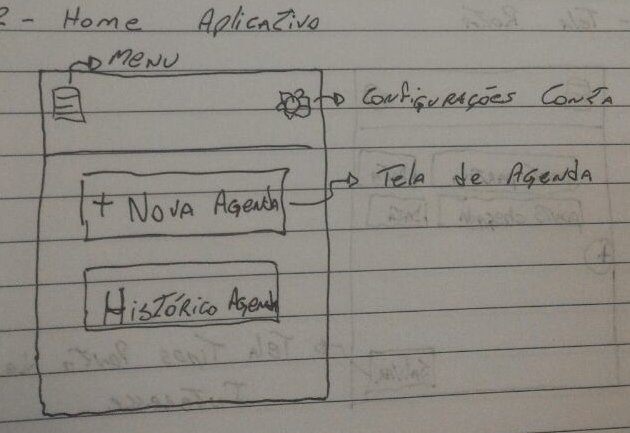 2 - Home Aplicativo
MENU
Configurações Conta
+ Nova Agenda
Tela de Agenda
Histórico Agenda